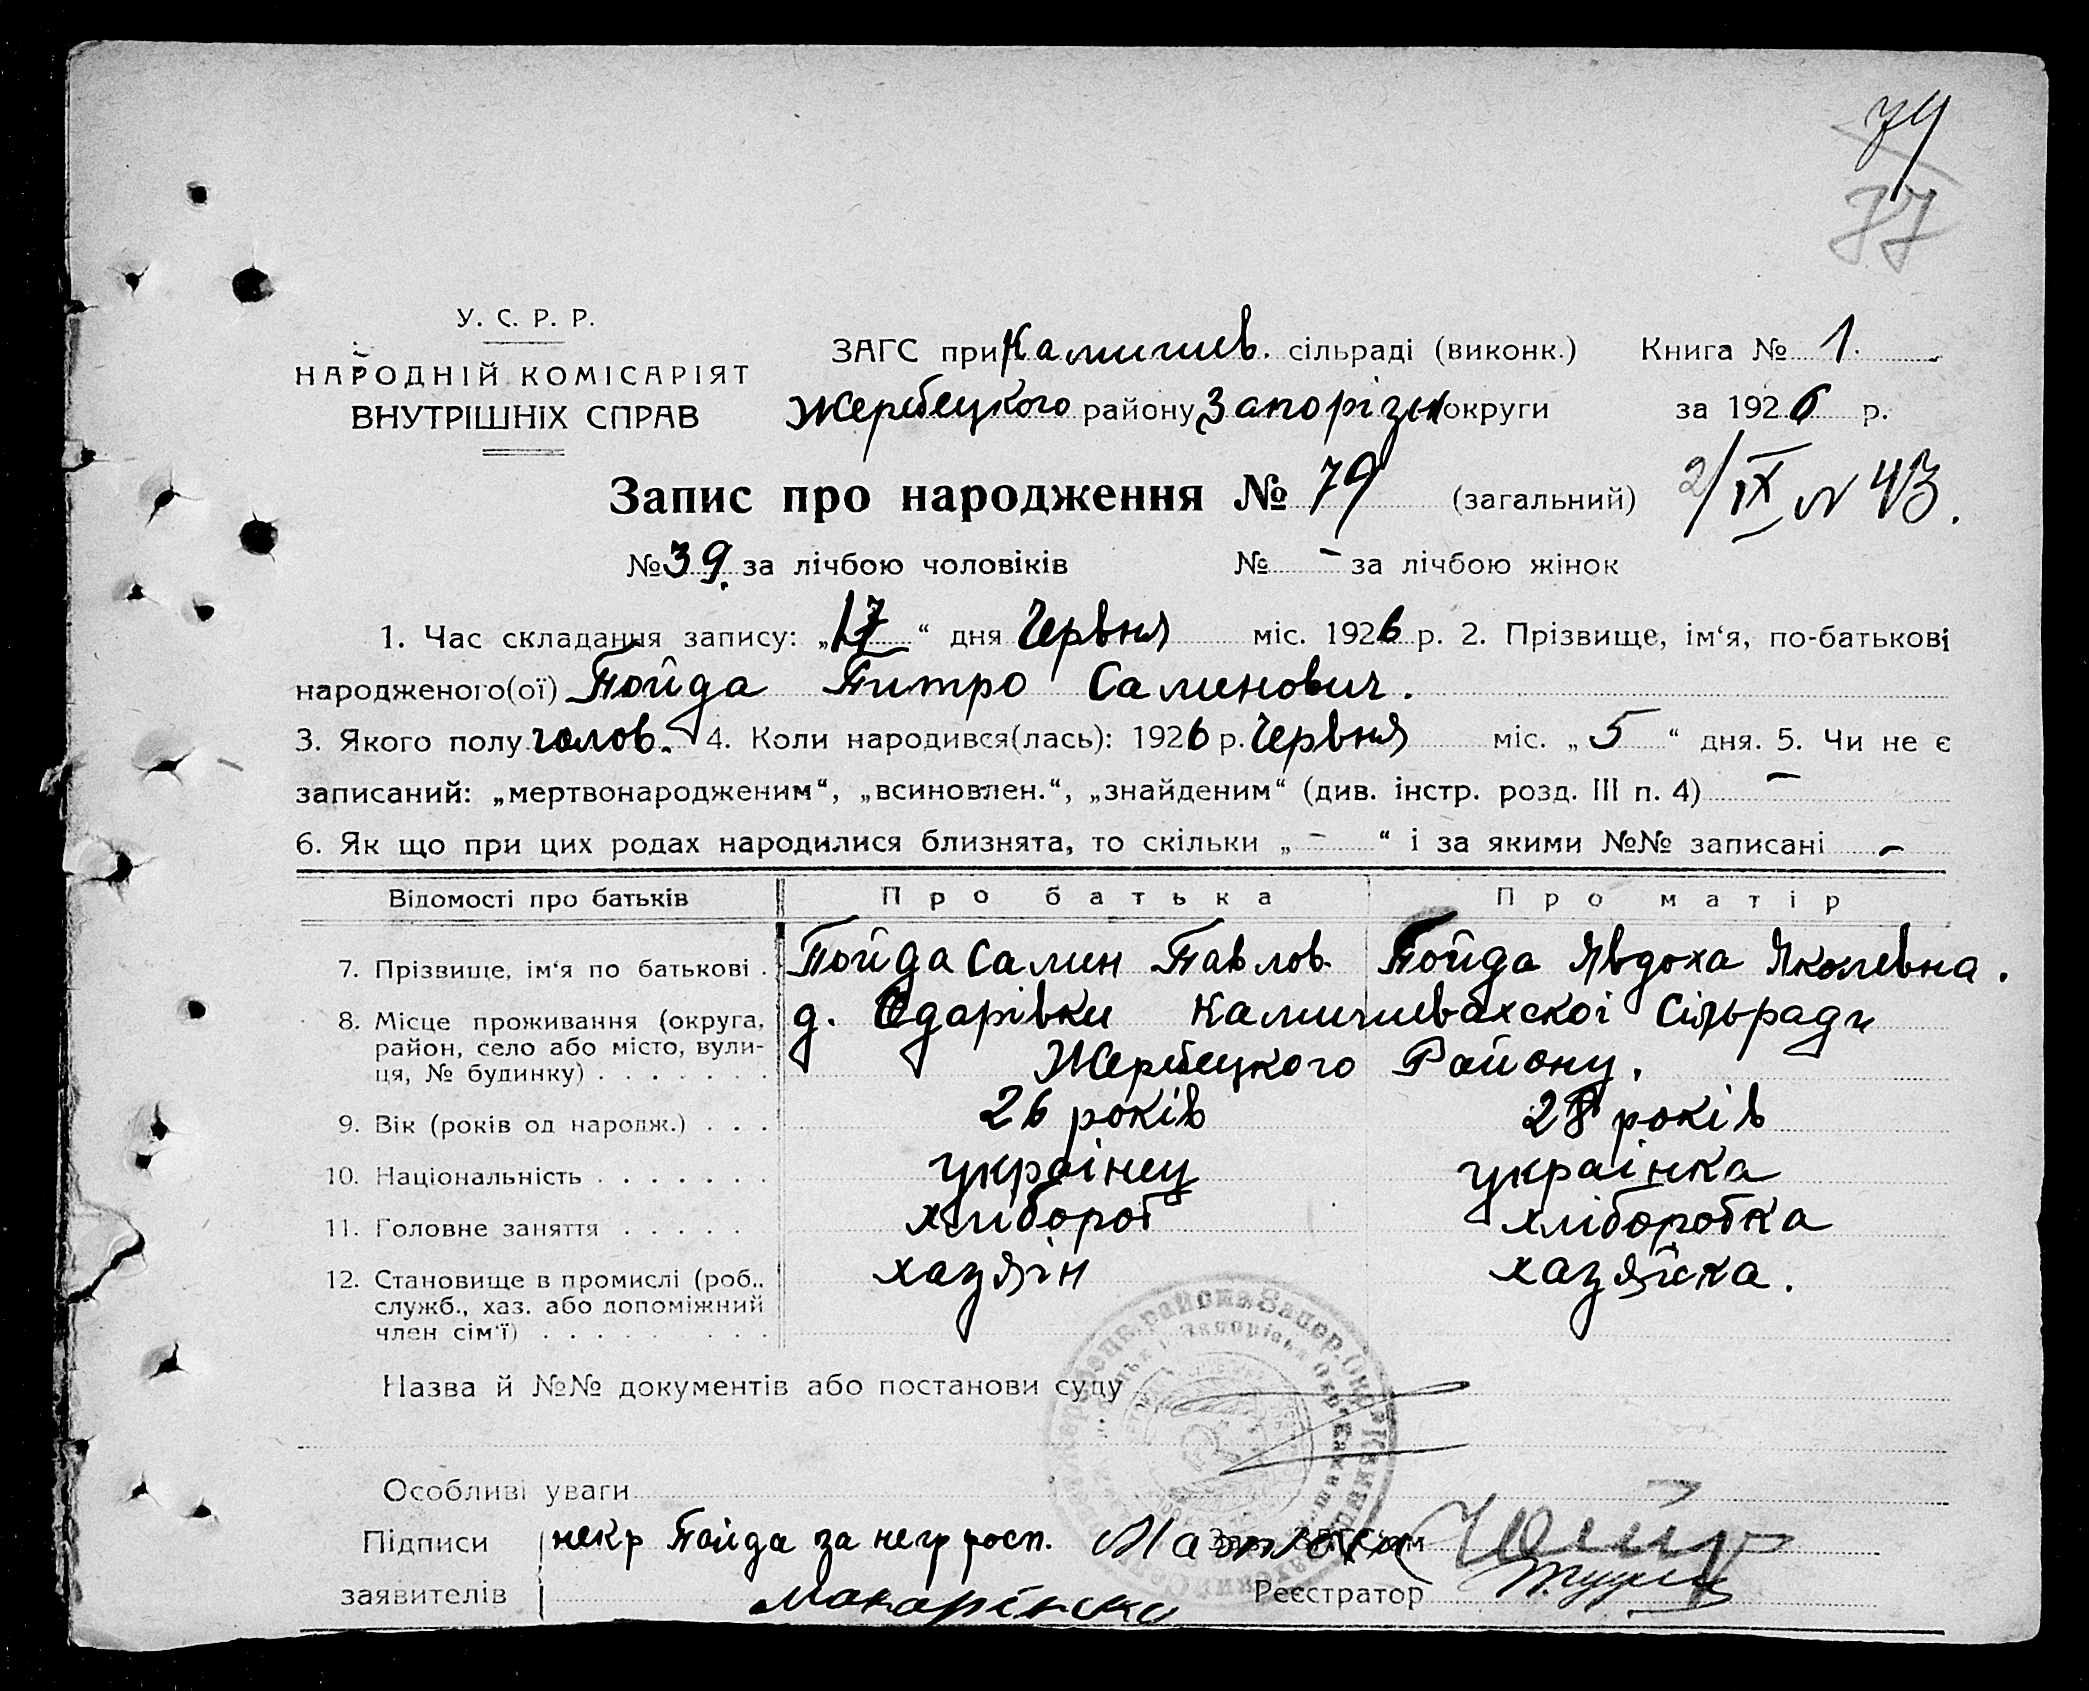 74
77
У. С. Р. Р.
НАРОДНІЙ КОМІСАРІЯТ
ВНУТРІШНІХ СПРАВ
ЗАГС при Камишев. сільраді (виконк.) Книга № 1.
Жеребецкого району Запорізьк округи за 1926 р.
Запис про народження № 79 (загальний) 2/IX N 43.
№ 39. за лічбою чоловіків № - за лічбою жінок
1. Час складання запису: „17“ дня Червня міс. 1926 р. 2. Прізвище, ім‘я, по-батькові
народженого(ої) Пойда Питро Саминович.
3. Якого полу чолов. 4. Коли народився(лась): 1926 р. Червня міс. „5“ дня. 5. Чи не є
записаний: „мертвонародженим“, „всиновлен.“, „знайденим“ (див. інстр. розд. III п. 4) -
6. Як що при цих родах народилися близнята, то скільки „ - “ і за якими №№ записані -
Відомості про батьків Про батька Про матір
7. Прізвище, ім‘я по батькові . Пойда Самин Павлов Пойда Явдоха Яковлевна.
8. Місце проживання (округа, д. Одарівки Камишевахскоі Сільради
район, село або місто, вули- Жеребецкого Району.
ця, № будинку) . . . . . . .
9. Вік (років од народж.) . . . 26 років 28 років
10. Національність . . . . . . . украінец украінка
11. Головне заняття . . . . . хлибороб хліборобка
12. Становище в промислі (роб., хазяін хазяйка.
служб., хаз. або допоміжний
член сім‘ї) . . . . . . . . .
Назва й №№ документів або постанови суду
Особливі уваги
Підписи некр Пойда за негр росп.
заявителів Макарінко Реєстратор